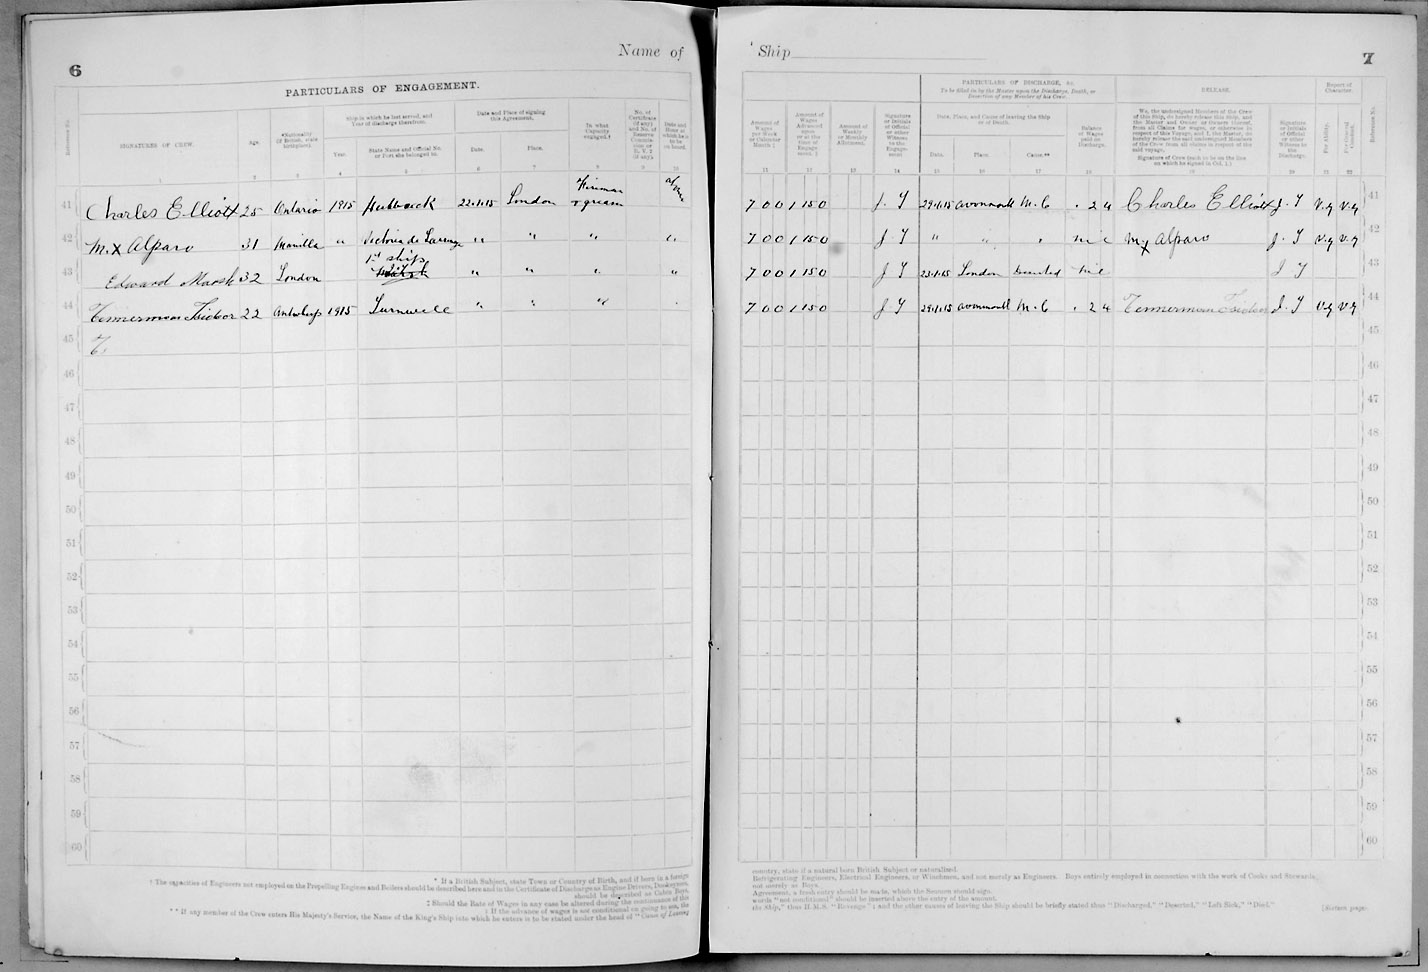 6
Name of
PARTICULARS OF ENGAGEMENT.
Reference No.
SIGNATURES OF CREW.
Age.
*Nationality (If British, state birthplace).
Ship in which he last served, and Year of discharge therefrom.
Year.
State Name and Official No. or Port she belonged to.
Date and Place of signing this Agreement.
Date.
Place.
In what Capacity engaged.†
No. of Certificate (if any)
Date and Hour at which he is to be on board.
1 2 3 4 5 6 7 8 9 10
41 Charles Elliott 25 Ontario 1915 22.1.15 London Fireman
42 M. X Alfaro 31 Manilla " Victoria de " " " "
43 Edward Marsh 32 London 1st ship " " " "
44 22 Antwerp 1915 " " "
45 T.
46
47
48
49
50
51
52
53
54
55
56
57
58
59
60
* If a British Subject, state Town or Country of Birth, and if born in a foreign
† The capacities of Engineers not employed on the Propelling Engines and Boilers should be described here and in the Certificate of Discharge as Engine Drivers, Donkeymen,
should be described as Cabin Boys,
‡ Should the Rate of Wages in any case be altered during the continuance of this
§ If the advance of wages is not conditional on going to sea, the
** If any member of the Crew enters His Majesty's Service, the Name of the King's Ship into which he enters is to be stated under the head of "Cause of Leaving
Ship
7
Amount of Wages per Week or Calendar Month ‡
Amount of Wages Advanced upon or at the time of Engagement. §
Amount of Weekly or Monthly Allotment.
Signature or Initials of Official or other Witness to the Engagement
PARTICULARS OF DISCHARGE, &c.
To be filled in by the Master upon the Discharge, Death, or Desertion of any Member of his Crew.
Date, Place, and Cause of leaving the Ship or of Death.
Date.
Place.
Cause.**
Balance of Wages paid on Discharge.
RELEASE.
We, the undersigned Members of the Crew of this Ship, do hereby release this Ship, and the Master and Owner or Owners thereof, from all Claims for wages, or otherwise in respect of this Voyage; and I, the Master, do hereby release the said undersigned Members of the Crew from all claims in respect of the said voyage.
Signature of Crew (each to be on the line on which he signed in Col. 1.)
Signature or Initials of Official or other Witness to the Discharge.
Report of Character.
For Ability.
For General Conduct.
Reference No.
11 12 13 14 15 16 17 18 19 20 21 22
7 0 0 1 15 0 29.1.15 Avonmouth M.C . 2 4 Charles Elliott V.g V.g 41
7 0 0 1 15 0 " " " nil M X Alfaro V.g V.g 42
7 0 0 1 15 0 23.1.15 London Deserted nil 43
7 0 0 1 15 0 29.1.15 Avonmouth M.C . 2 4 V.g V.g 44
45
46
47
48
49
50
51
52
53
54
55
56
57
58
59
60
country, state if a natural born British Subject or naturalised.
Refrigerating Engineers, Electrical Engineers, or Winchmen, and not merely as Engineers. Boys entirely employed in connection with the work of Cooks and Stewards,
not merely as Boys.
Agreement, a fresh entry should be made, which the Seamen should sign.
words "not conditional" should be inserted above the entry of the amount.
the Ship," thus H.M.S. "Revenge"; and the other causes of leaving the Ship should be briefly stated thus "Discharged," "Deserted," "Left Sick," "Died."
[Sixteen page-